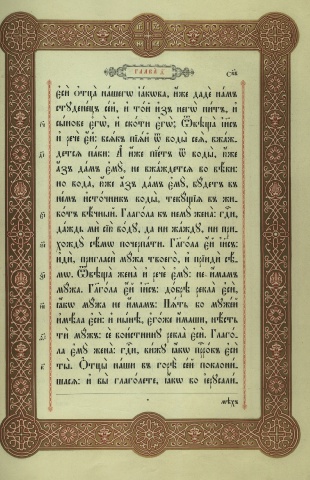 ГЛАВА Д҃.
є҆сѝ ѻ҆тца̀ на́шегѡ і҆а́кѡва, и҆́же дадѐ на́мъ
студене́цъ се́й, и҆ то́й и҆з̾ негѡ̀ пи́тъ, и҆
сы́нове є҆гѡ̀, и҆ ско́ти є҆гѡ̀; Ѿвѣща̀ і҆и҃съ
и҆ речѐ є҆́й: всѧ́къ пїѧ́й ѿ воды̀ сеѧ̀, вжа́ж-
детсѧ па́ки: А҆ и҆́же пїе́тъ ѿ воды̀, ю҆́же
а҆́зъ да́мъ є҆мꙋ̀, не вжа́ждетсѧ во вѣ́ки:
но вода̀, ю҆́же а҆́зъ да́мъ є҆мꙋ̀, бꙋ́детъ въ
не́мъ и҆сто́чникъ воды̀, текꙋ́щїѧ въ жи-
во́тъ вѣ́чный. Глаго́ла къ немꙋ̀ жена̀: гдⷭ҇и,
да́ждь мѝ сїю̀ во́дꙋ, да ни жа́ждꙋ, ни при-
хождꙋ̀ сѣ́мѡ почерпа́ти. Глаго́ла є҆́й і҆и҃съ:
и҆дѝ, пригласѝ мꙋ́жа твоего̀, и҆ прїидѝ сѣ́-
мѡ. Ѿвѣща̀ жена̀ и҆ речѐ є҆мꙋ̀: не и҆́мамъ
мꙋ́жа. Глаго́ла є҆́й і҆и҃съ: до́брѣ рекла̀ є҆сѝ,
ꙗ҆́кѡ мꙋ́жа не и҆́мамъ: Пѧ́ть бо мꙋже́й
и҆мѣ́ла є҆сѝ: и҆ нн҃ѣ, є҆го́же и҆́маши, нѣ́сть
тѝ мꙋ́жъ: сѐ вои́стиннꙋ рекла̀ є҆сѝ. Глаго́-
ла є҆мꙋ̀ жена̀: гдⷭ҇и, ви́ждꙋ ꙗ҆́кѡ прⷪ҇ро́къ є҆сѝ
ты̀. Ѻ҆тцы̀ на́ши въ горѣ̀ се́й поклони́-
шасѧ: и҆ вы̀ глаго́лете, ꙗ҆́кѡ во і҆ерⷭ҇али́-
мѣхъ